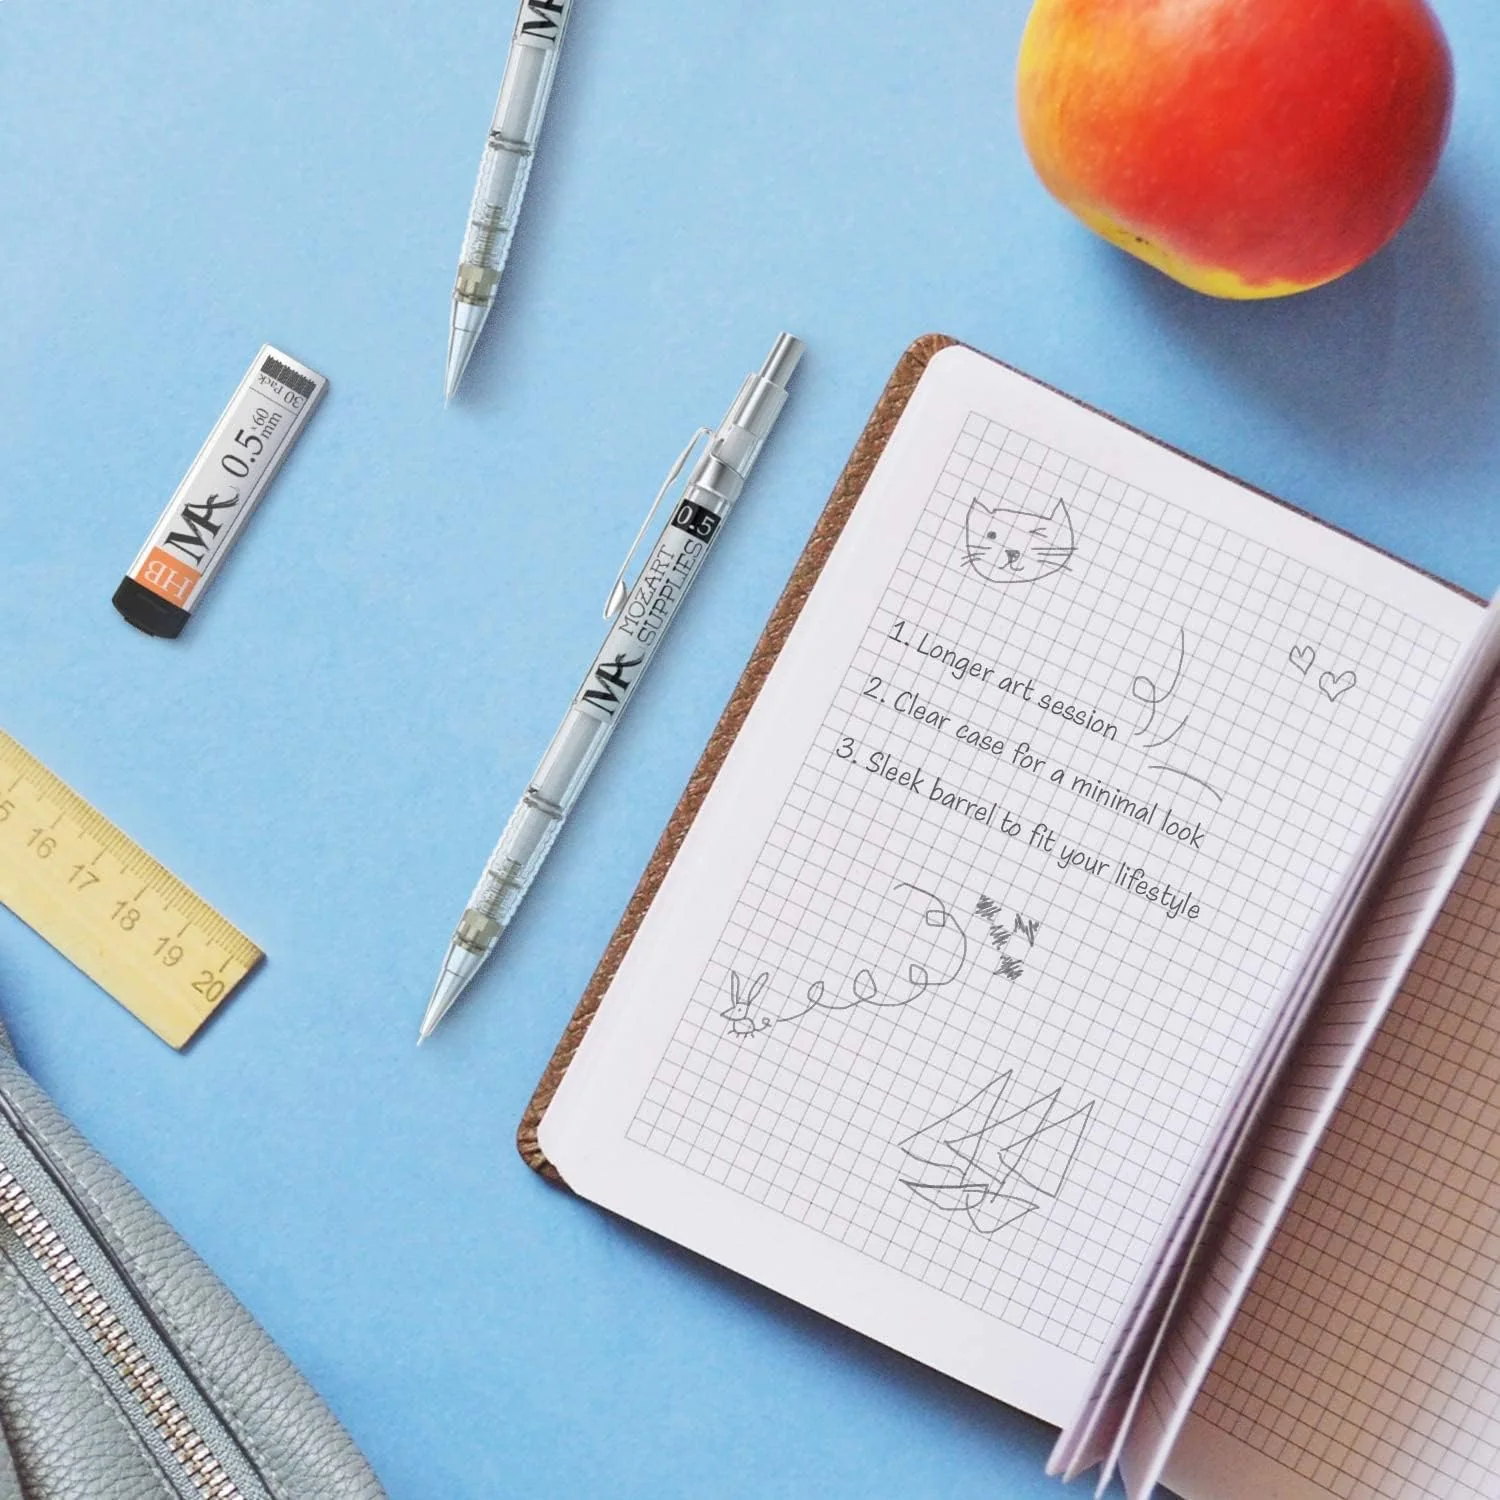 MA
30 Pack
0.5 x60 mm
MA
HB
0.5
MOZART
SUPPLIES
MA
1. Longer art session
2. Clear case for a minimal look
3. Sleek barrel to fit your lifestyle
5 16 17 18 19 20